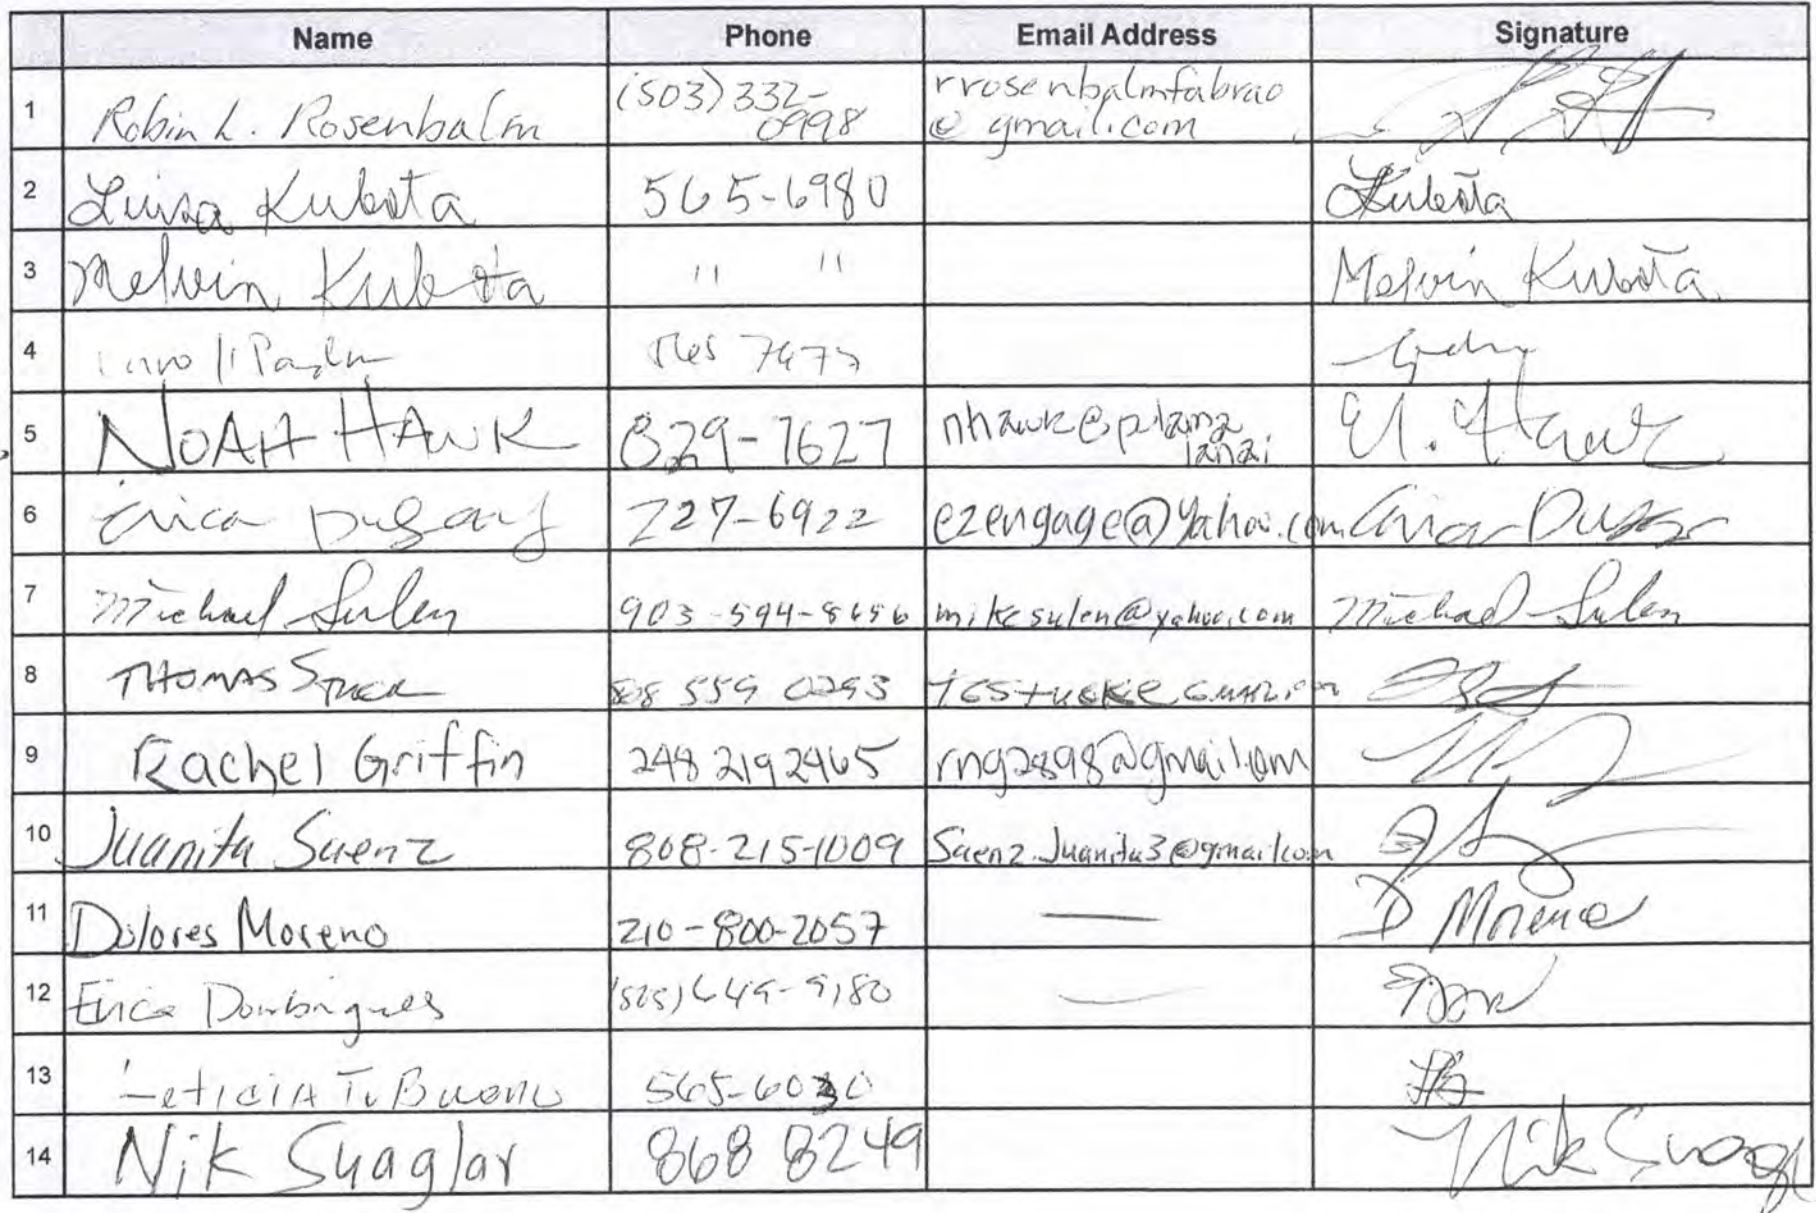 Name Phone Email Address Signature
1 Robin L. Rosenbalm (503) 332-0998 rrosenbalmfabrao@gmail.com
2 Luisa Kubota 565-6980 LKubota
3 Melvin Kubota " " Melvin Kubota
4
5 NOAH HAWK 829-7627 nhawk@pulama lanai N. Hawk
6 Erica Dugany 727-6922 ezengage@yahoo.com
7 Michael Sulen 903-594-8656 mikesulen@yahoo.com Michael Sulen
8 THOMAS
9 Rachel Griffin 248 219 2465 rng2898@gmail.com
10 Juanita Saenz 808-215-1009 Saenz.Juanita3@gmail.com
11 Dolores Moreno 210-800-2057 — D Moreno
12 —
13 Leticia T. Bueno 565-6030
14 Nik Suaglar 868 8249 Nik